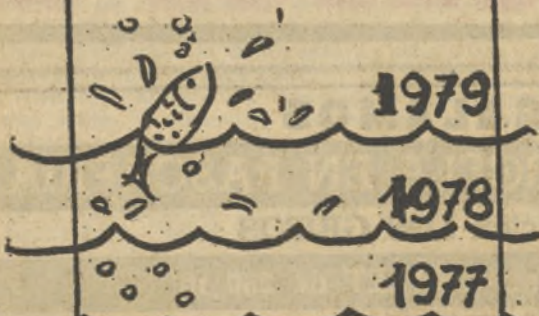 1979
1978
1977